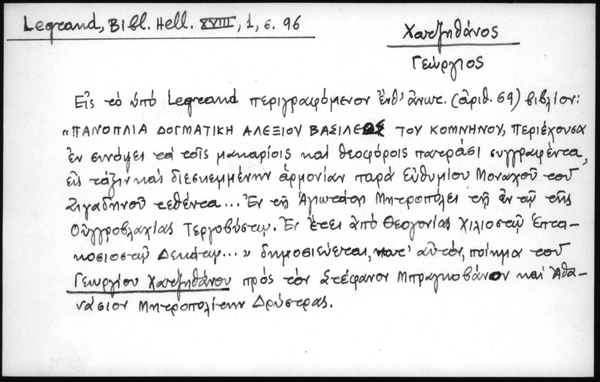 Legrand, Bibl. Hell. XVIII, 1, σ. 96
Χατζηθάνος
Γεώργιος
Εἰς τὸ ὑπὸ Legrand περιγραφόμενον ἔνθ' ἀνωτ. (ἀριθ. 69) βιβλίον:
"ΠΑΝΟΠΛΙΑ ΔΟΓΜΑΤΙΚΗ ΑΛΕΞΙΟΥ ΒΑΣΙΛΕΩΣ ΤΟΥ ΚΟΜΝΗΝΟΥ, Περιέχουσα
ἐν συνόψει τὰ τοῖς μακαρίοις καὶ θεοφόροις πατράσι συγγραφέντα,
εἰς τάξιν καὶ διεσκεμμένην ἁρμονίαν παρὰ Εὐθυμίου Μοναχοῦ τοῦ
Ζιγαδηνοῦ τεθέντα... Ἐν τῇ Ἁγιωτάτῃ Μητροπόλει τῇ ἐν τῇ τῆς
Οὐγγροβλαχίας Τεργοβύστῳ. Ἐν ἔτει ἀπὸ Θεογονίας Χιλιοστῷ Ἑπτα-
κοσιοστῷ Δεκάτῳ..." δημοσιεύεται, κατ' αὐτόν, ποίημα τοῦ
Γεωργίου Χατζηθάνου πρὸς τὸν Στέφανον Μπραγκοβάνον καὶ Ἀθα-
νάσιον Μητροπολίτην Δρύστρας.